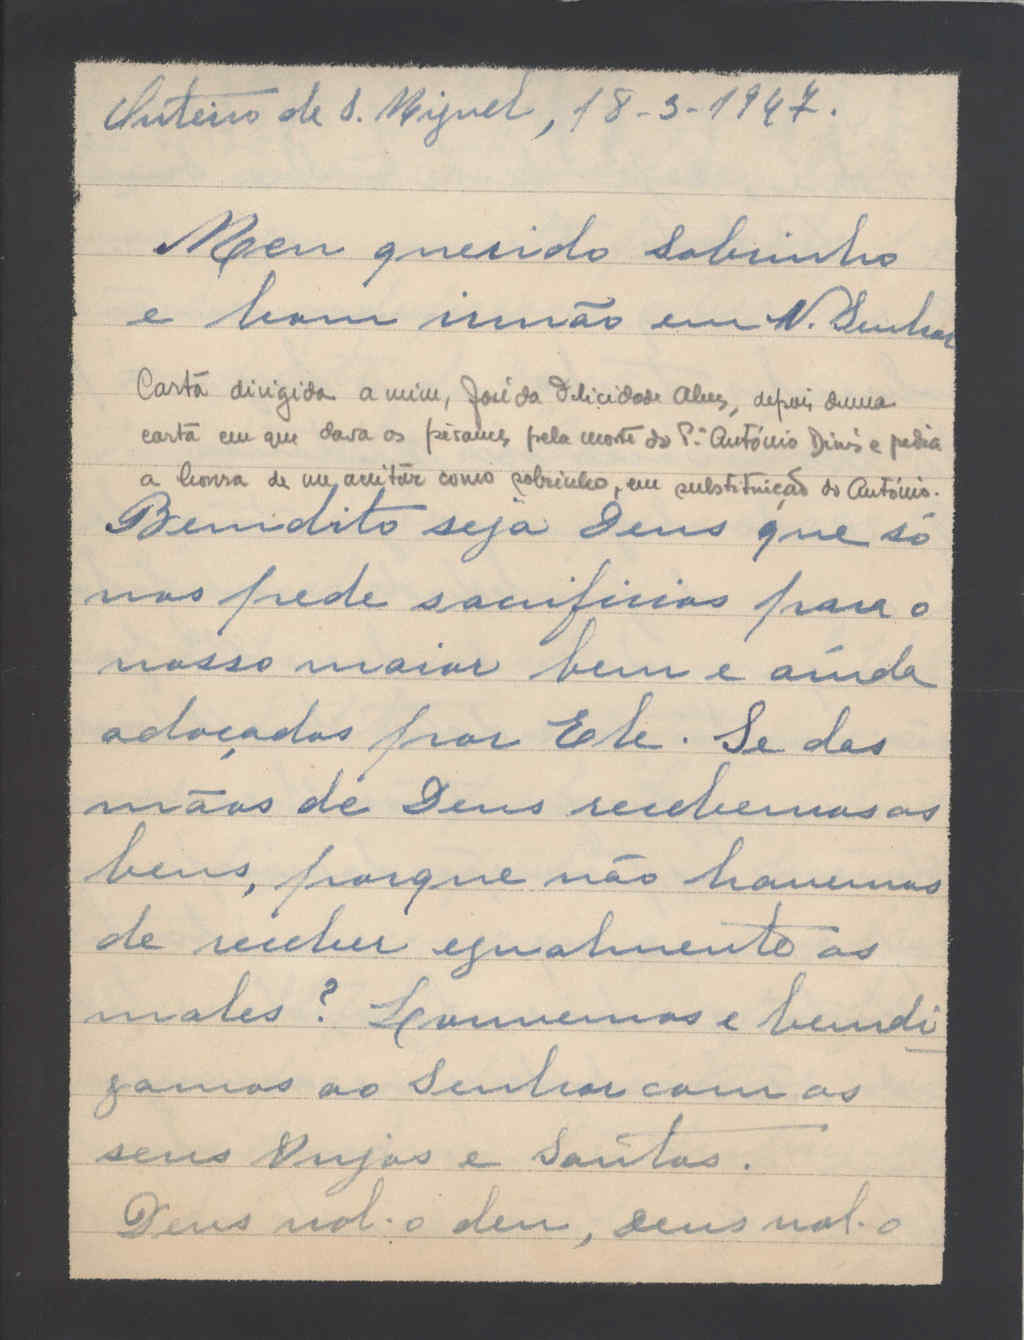 Outeiro de S. Miguel, 18-3-1947.
Meu querido Sobrinho
e bom irmão em N. Senhor
Carta dirigida a mim, José da Felicidade Alves, depois duma
carta em que dava os pêsames pela morte do P.e António Dinis e pedia
a honra de me aceitar como sobrinho, em substituição do António.
Bemdito seja Deus que só
nos pede sacrificios para o
nosso maior bem e aínda
adoçados por Ele. Se das
mãos de Deus recebemos os
bens, porque não havemos
de receber egualmente os
males? Louvemos e bemdi
gamos ao Senhor com os
seus Anjos e Santos.
Deus nol-o deu, Deus nol-o